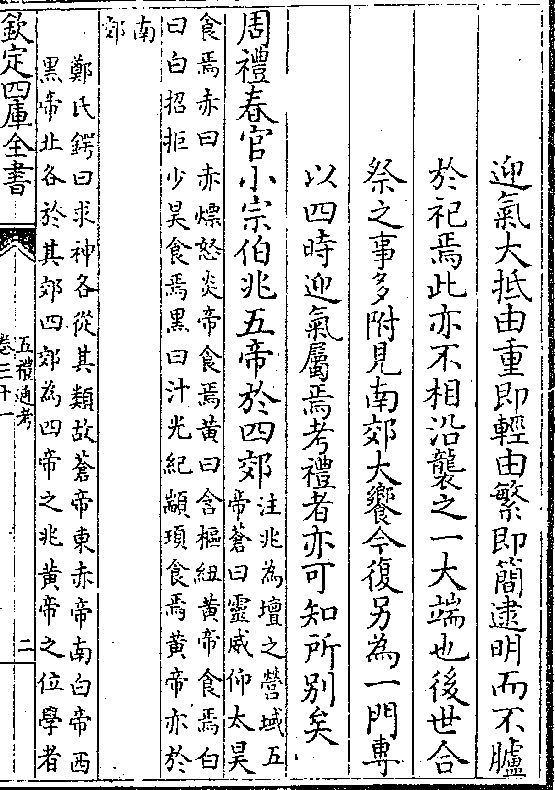 迎氣大抵由重即輕由繁即簡逮明而不臚
於祀焉此亦不相沿襲之一大端也後世合
祭之事多附見南郊大饗今復另為一門專
以四時迎氣屬焉考禮者亦可知所別矣
周禮春官小宗伯兆五帝於四郊
注兆為壇之營域五
帝蒼曰靈威仰太昊
食焉赤曰赤熛怒炎帝食焉黃曰含樞紐黃帝食焉白
曰白招拒少昊食焉黑曰汁光紀顓頊食焉黃帝亦於
南
郊
鄭氏鍔曰求神各從其類故蒼帝東赤帝南白帝西
黑帝北各於其郊四郊為四帝之兆黃帝之位學者
欽定四庫全書
五禮通考
卷三十一
二